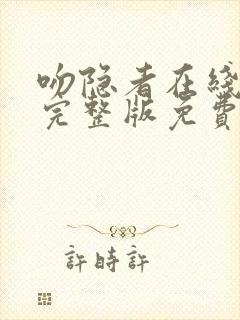 吻隐者在线
完整版免費
許時許